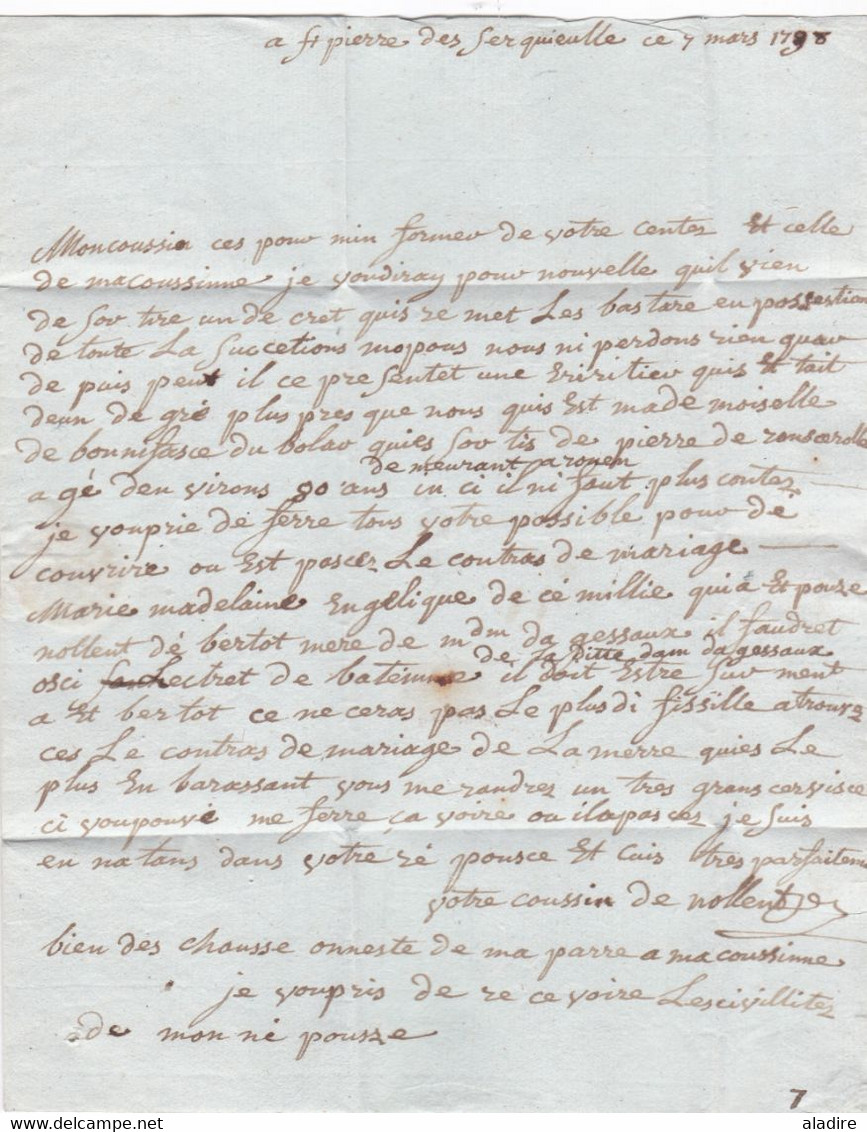 a st pierre des serquieulle ce 7 mars 1798
Moncoussin ces pour min former de votre centez Et celle
de macoussinne je voudiray pour nouvelle quil vien
de sor tire un de cret quis re met Les bastare en possestion
de toute La succetions mopous nous ni perdons rien quar
de puis peut il ce pre sentet une Eriritier quis Et tait
deun de gré plus pres que nous quis Est made moiselle
de bonnifasce du bolar quies sor tis de pierre de ronscerolle
de meurant a rouen
a gé den virons 80 ans in ci il ni faut plus contez
je vouprie de ferre tous votre possible pour dé
couvrire ou Est pascez Le contras de mariage
Marie madelaine Engelique de cé millie qui a Et pouze
nollent dé bertot mere de mdm da gessaux il faudret
de la ditte dam da gessaux
osci Lectret de batemme il doit Estre sur ment
a Et bertot ce ne ceras pas Le plus di fissille a trouvez
ces Le contras de mariage de La merre quies Le
plus En barassant vous me randrez un tres grans cervisce
ci voupouvé me ferre ça voire ou ilapascez je suis
en na tans dans votre ré pousce Et cuis tres parfaitem
votre coussin de nollent
bien des chausse onneste de ma parre a macoussinne
je voupris de re ce voire Lescivillitez
de mon né pousze
7
aladire